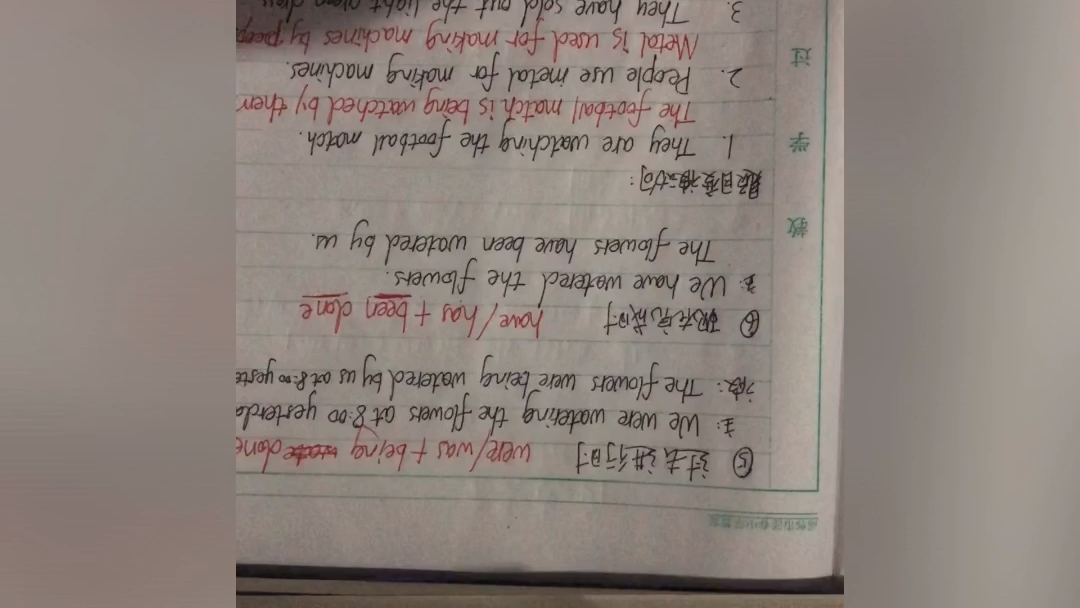 ⑤ 过去进行时 were/was + being done
主: We were watering the flowers at 8:00 yesterda
被: The flowers were being watered by us at 8:00 yeste
⑥ 现在完成时 have/has + been done
主: We have watered the flowers.
The flowers have been watered by us.
题目变被动句:
1. They are watching the football match.
The football match is being watched by them
2. People use metal for making machines.
Metal is used for making machines by peop
3. They have sold out the light
教
学
过